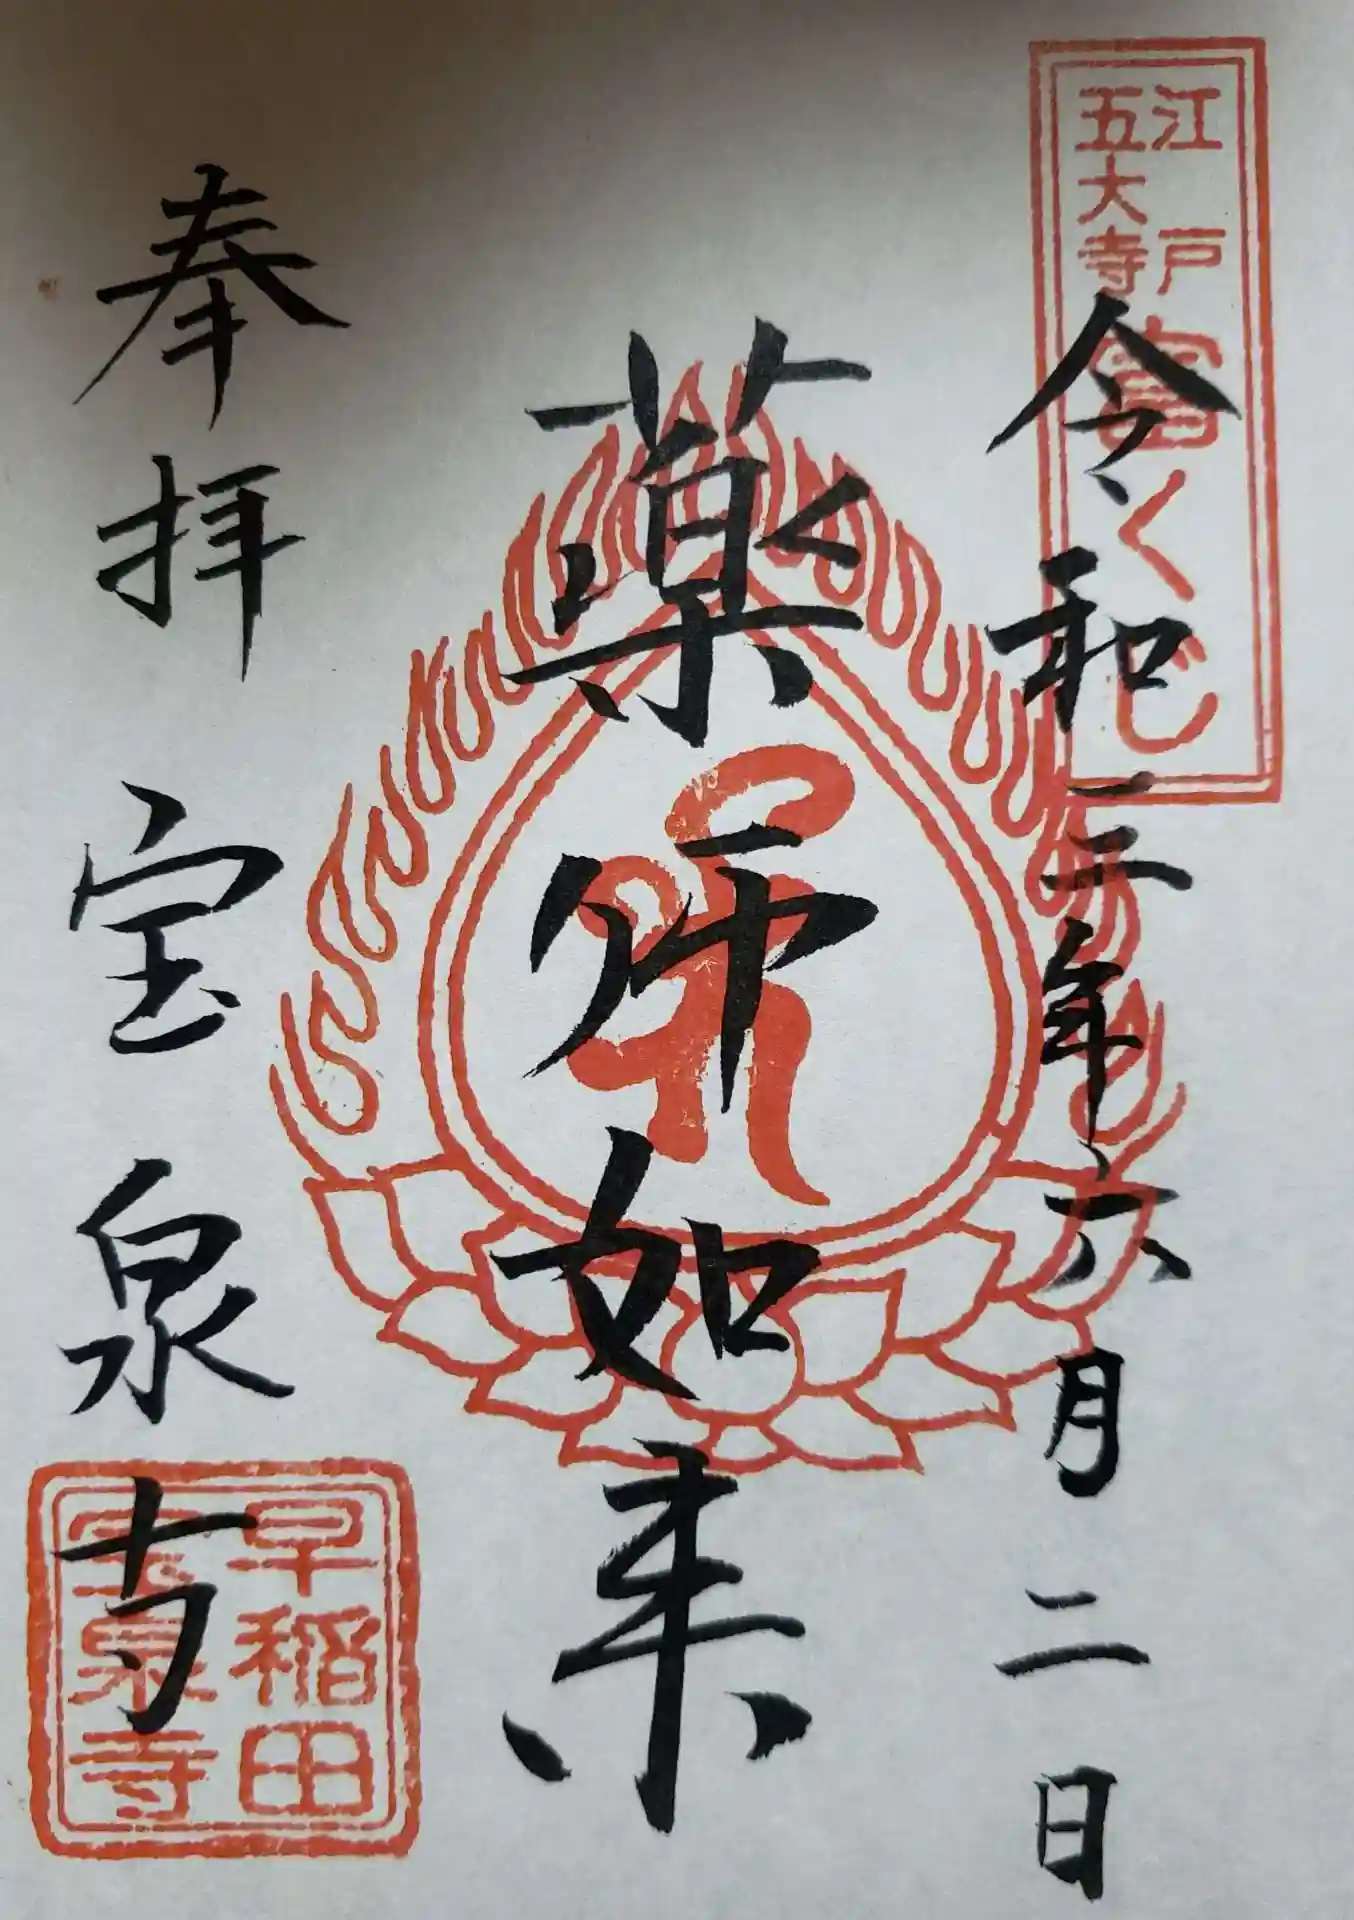 江戸
五大寺
富くじ
令和三年六月二日
薬師如来
奉拝 宝泉寺
早稲田
宝泉寺